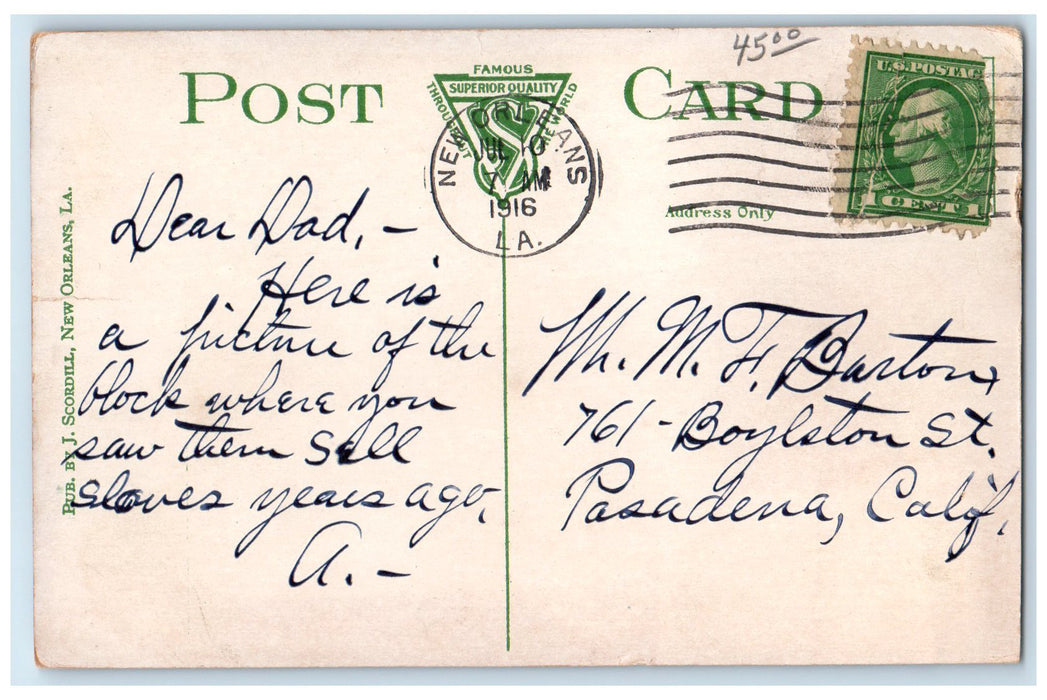 45⁰⁰
POST CARD
FAMOUS
SUPERIOR QUALITY
THROUGHOUT THE WORLD
S
U.S. POSTAGE
1 CENT 1
NEW ORLEANS
JUL 10
7 AM
1916
LA.
Address Only
PUB. BY J. SCORDILL, NEW ORLEANS, LA.
Dear Dad, -
Here is
a picture of the
block where you
saw them sell
sloves years ago,
A. -
Mr. M. F. Barton,
761 - Boylston St.
Pasadena, Calif.